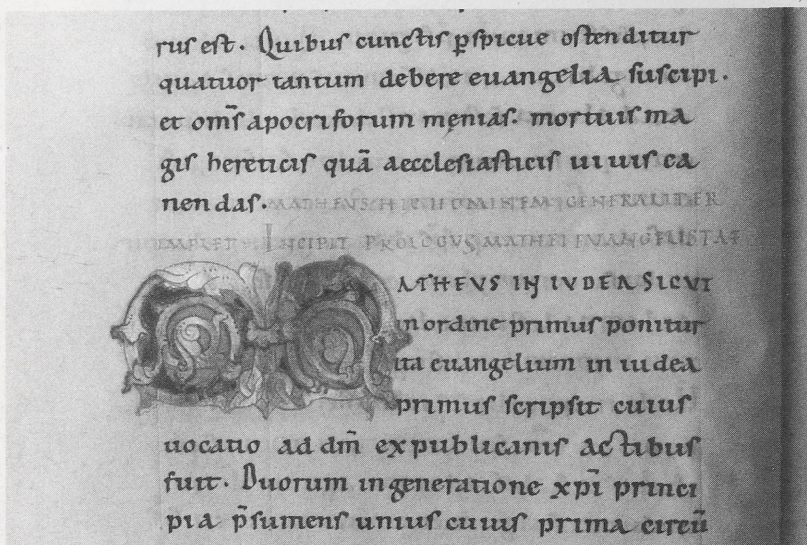 rus est. Quibus cunctis p̄spicue ostenditur
quatuor tantum debere euangelia suscipi.
et om̄s apocriforum męnias. mortuis ma
gis hereticis quā aecclesiasticis uiuis ca
nendas. MATHEUS HIC HOMINEM GENERALITER
IMPLET INCIPIT PROLOGUS MATHEI EUANGELISTAE
MATHEUS IN IUDEA SICUT
in ordine primus ponitur
ita euangelium in iudea
primus scripsit cuius
uocatio ad dm̄ ex publicanis actibus
fuit. Duorum in generatione xp̄i princi
pia p̄sumens unius cuius prima circū